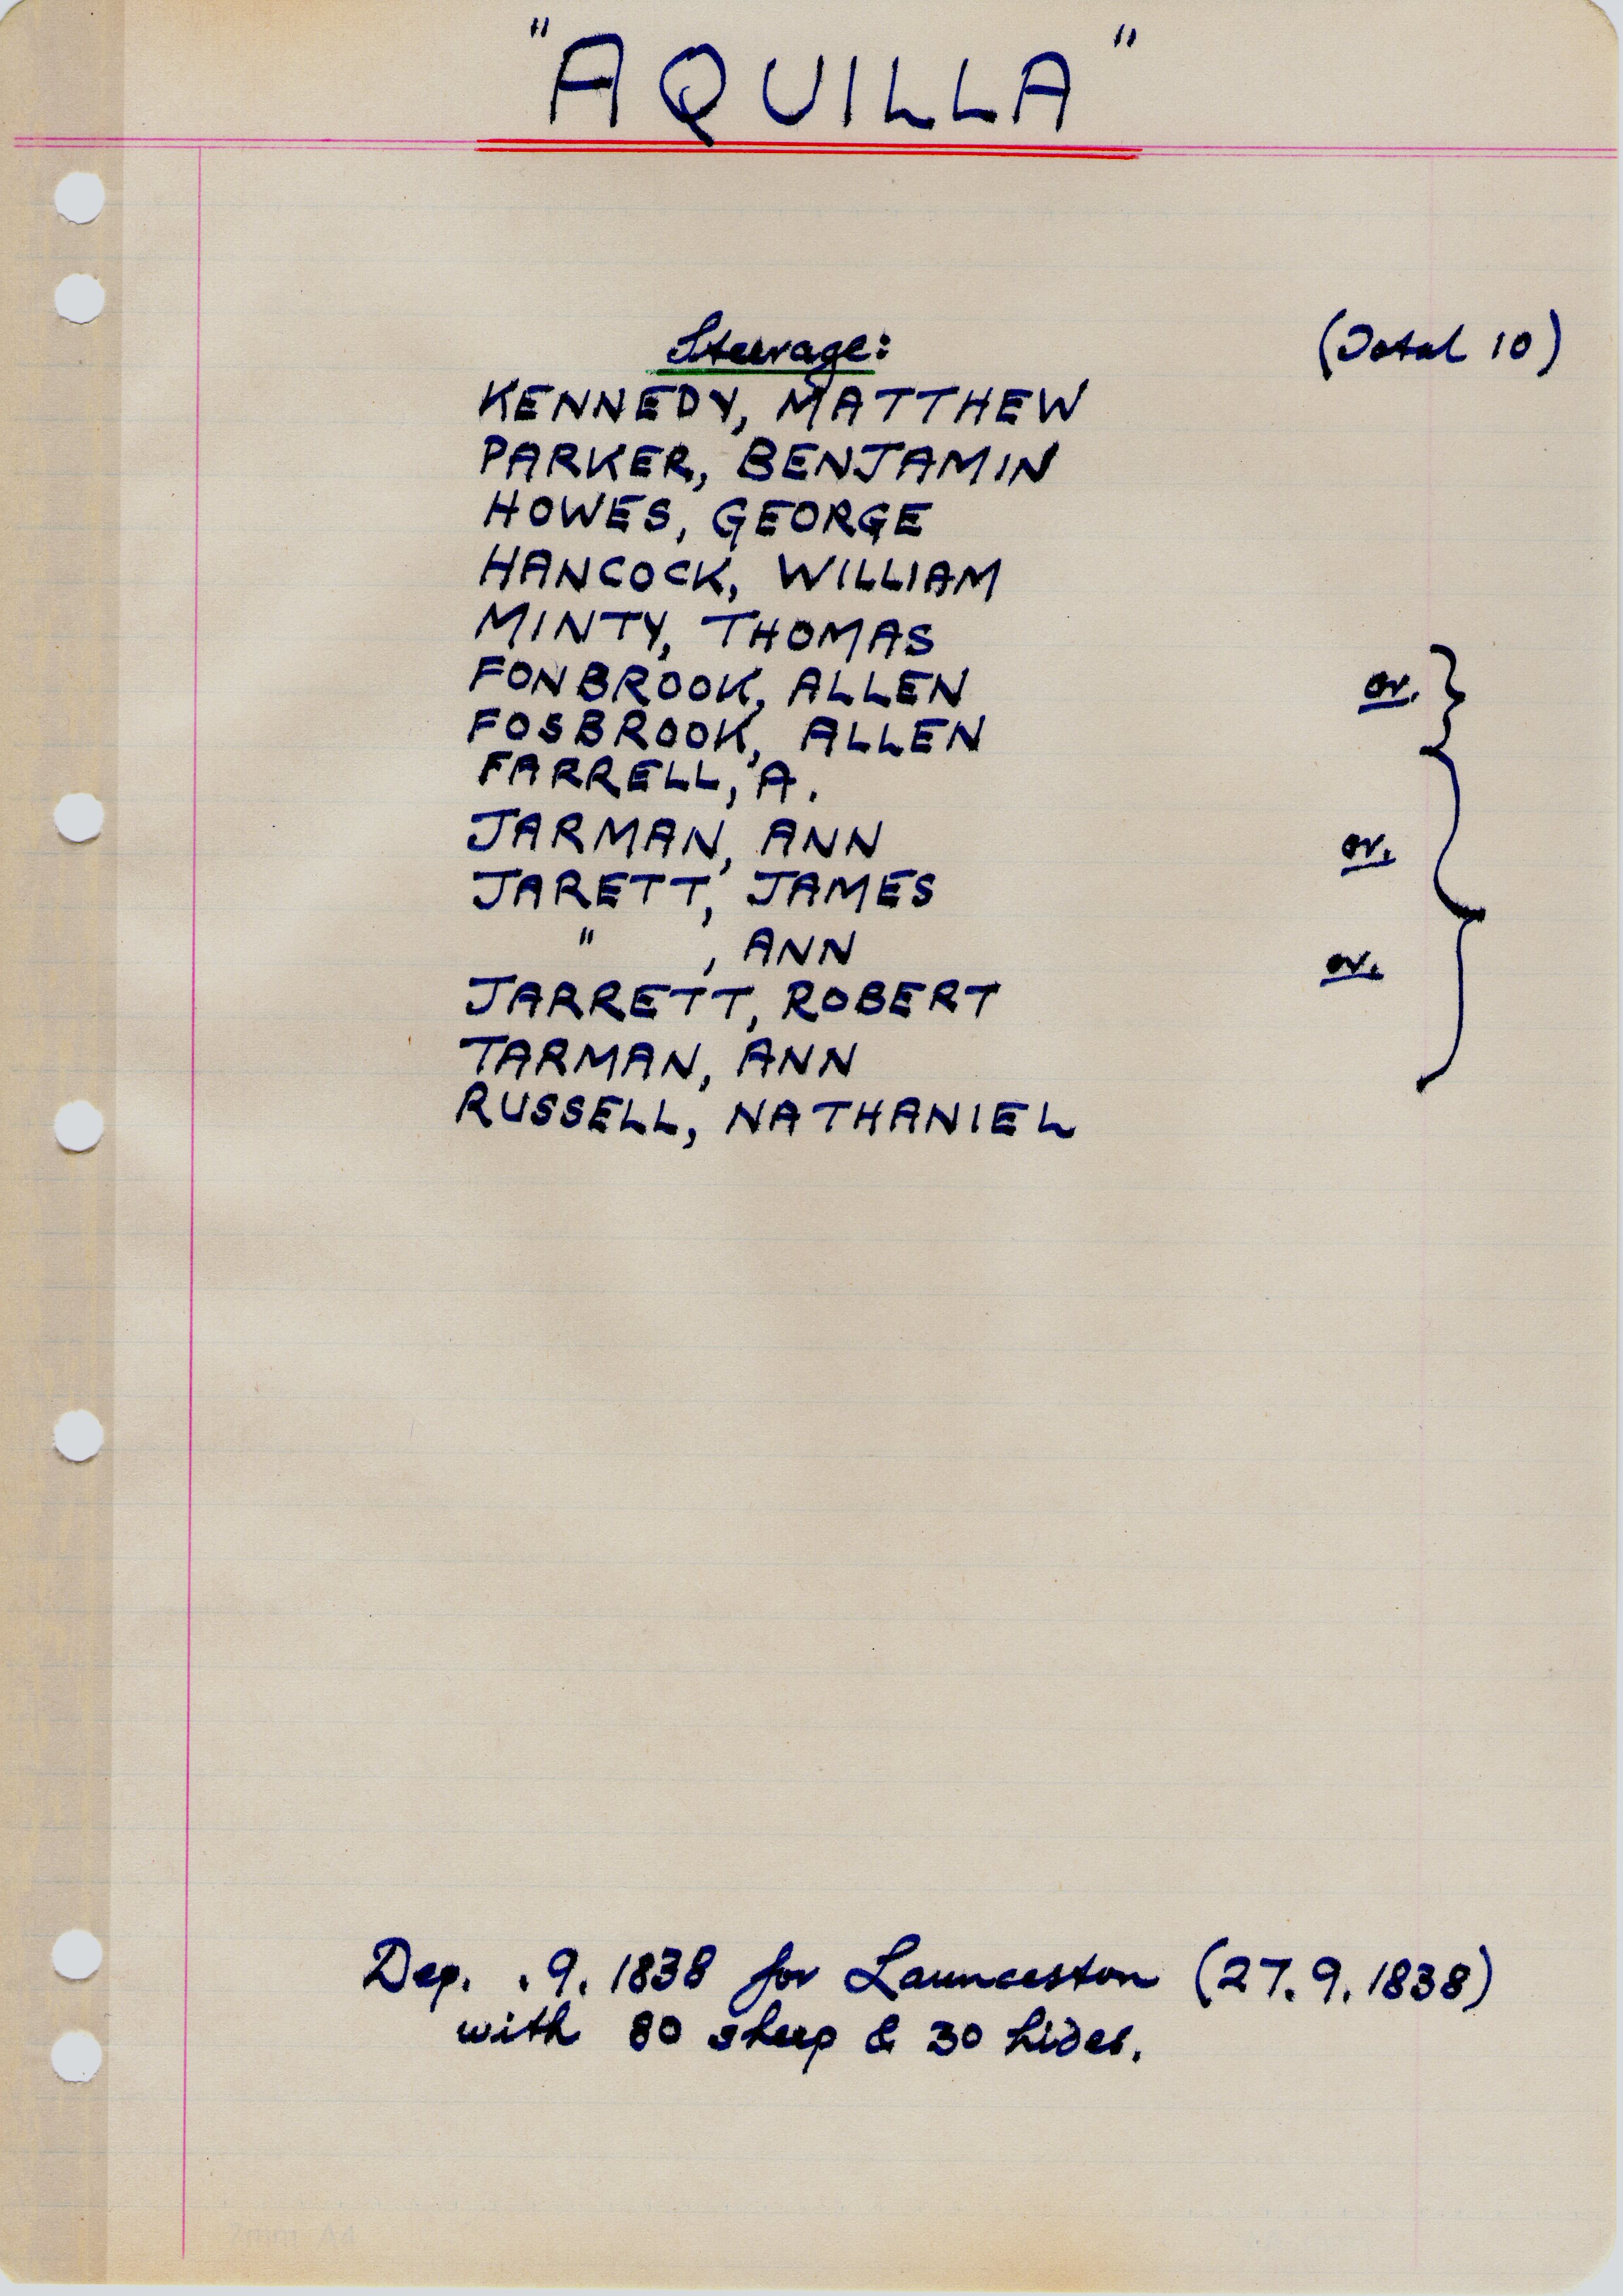 "AQUILLA"
Steerage: (Total 10)
KENNEDY, MATTHEW
PARKER, BENJAMIN
HOWES, GEORGE
HANCOCK, WILLIAM
MINTY, THOMAS
FONBROOK, ALLEN or. }
FOSBROOK, ALLEN
FARRELL, A.
JARMAN, ANN or. }
JARETT, JAMES
" , ANN or. }
JARRETT, ROBERT
TARMAN, ANN
RUSSELL, NATHANIEL
Dep. .9.1838 for Launceston (27.9.1838)
with 80 sheep & 30 hides.
7mm A4